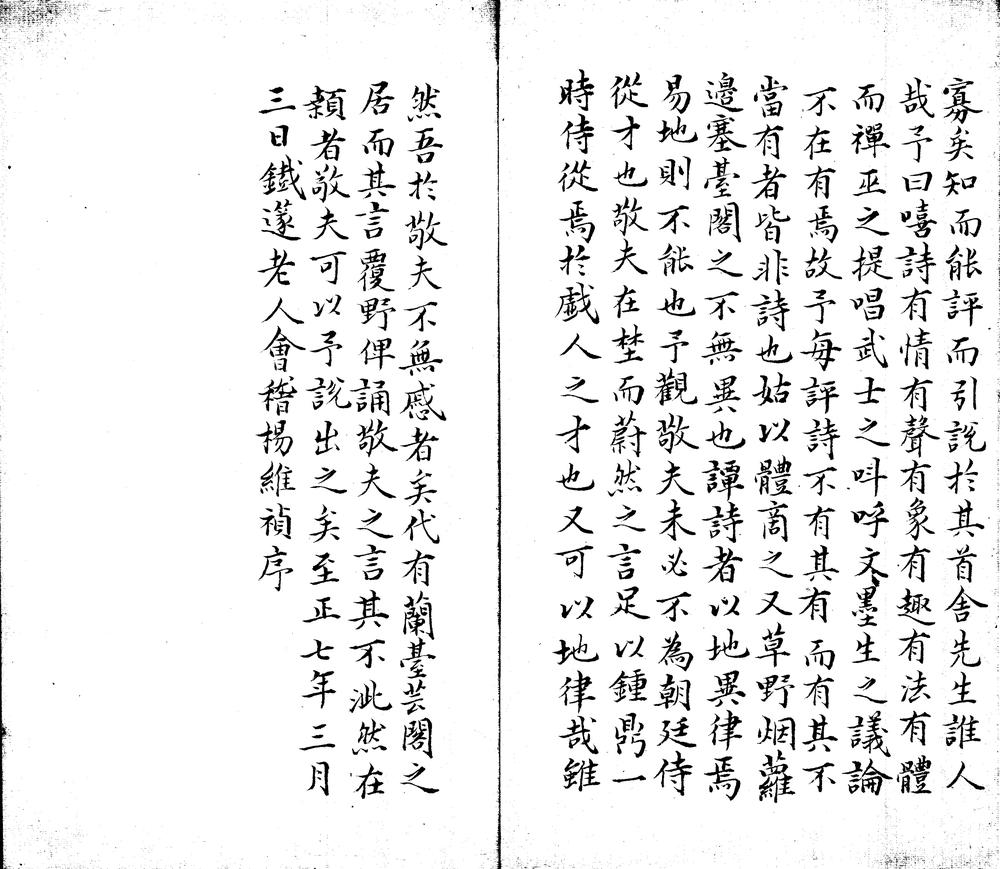 寡矣知而能評而引說於其首舎先生誰人
哉予曰嘻詩有情有聲有象有趣有法有體
而禪巫之提唱武士之呌呼文墨生之議論
不在有焉故予每評詩不有其有而有其不
當有者皆非詩也姑以體啇之又草野烟蘿
邉塞䑓閣之不無異也譚詩者以地異律焉
易地則不能也予觀敬夫未必不為朝廷侍
從才也敬夫在埜而蔚然之言足以鍾鼎一
時侍從焉於戯人之才也又可以地律哉雖
然吾於敬夫不無感者矣代有蘭䑓芸閣之
居而其言覆野俾誦敬夫之言其不泚然在
顙者敬夫可以予說出之矣至正七年三月
三日鐵邃老人會稽楊維禎序